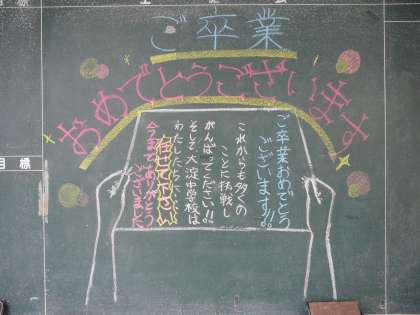 ご卒業
おめでとうございます
ご卒業おめでとう
ございます!!
これからも多くの
ことに挑戦し
がんばってください!!
そして大淀中学校は
わたしたちで……
任せて下さい
今までありがとう
ございました
目標